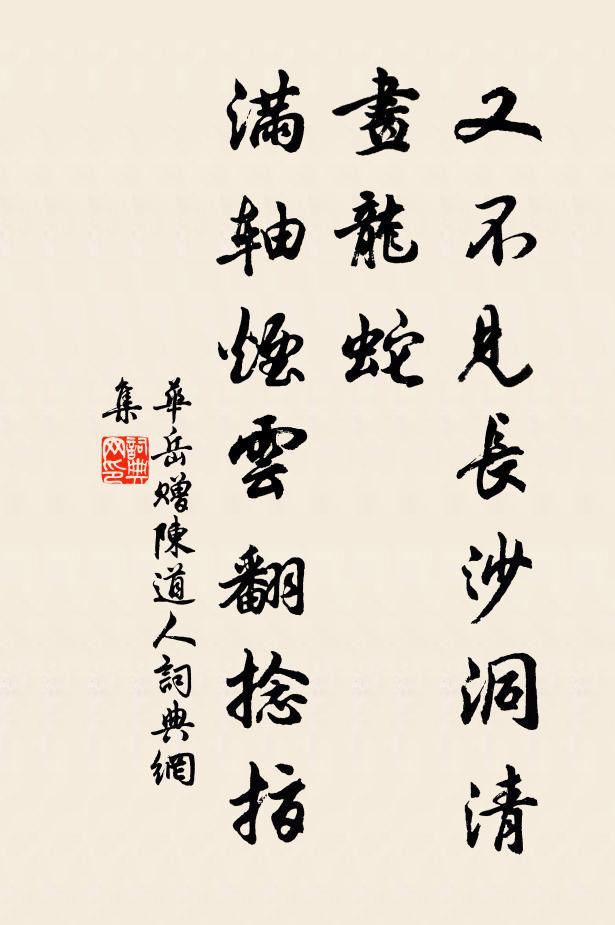 又不見長沙洞清
畫龍蛇
滿軸煙雲翻捻指
華岳赠陳道人詞典網
集
詞典
网印